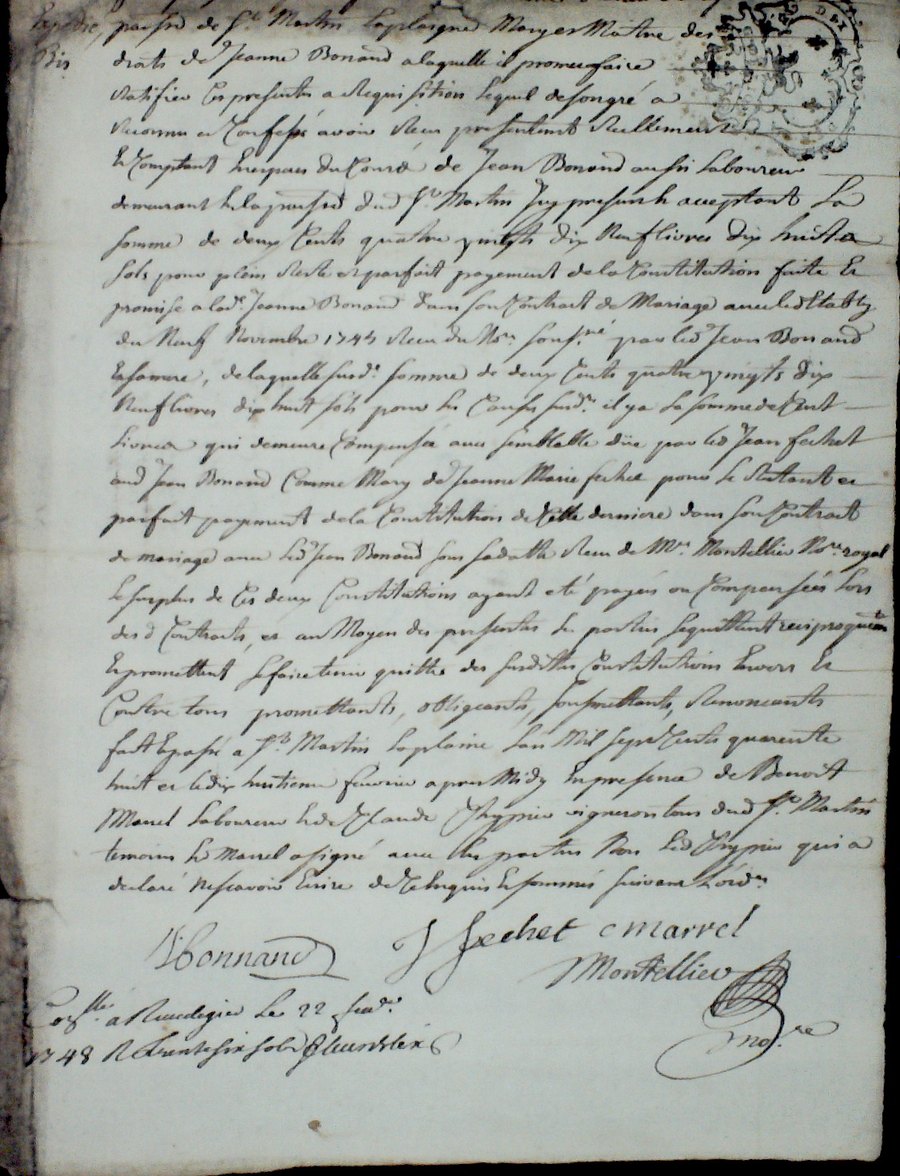 Expedié,
Bis
parsse de St Martin Laplaigne Mary et Maitre des
droits de Jeanne Bonand a laquelle il promet faire
Ratifier Ces presentes a Requisition Lequel de son gré a
Reconnu et Confessé avoir Receu presentemt Reellement
Et Comptant de Jean Bonand aussi Laboureur
demeurant en la parsse dud St Martin Icy present et acceptant La
Somme de deux Cents quatre vingts dix Neuf livres dix huit
Sols pour plein Reste et parfait payement de la Constitution faite Et
promise a lade Jeanne Bonand dans son Contract de Mariage avec led
du Neuf Novembre 1745 Receu du Nore Sousné par led Jean Bonand
, de laquelle susde somme de deux Cents quatre vingts dix
Neuf livres dix huit sols pour les Causes susdes il y a La somme de Cent
Livres qui demeure Compensée avec semblable düe par led Jean fechet
aud Jean Bonand Comme Mary de Jeanne Marie fechet pour le Restant et
parfait payement de la Constitution de Cette derniere dans son Contract
de mariage avec led Jean Bonand sous sa datte Receu de Me Montellier Nore royal
Le surplus de Ces deux Constitutions ayant eté payés ou Compensées Lors
desd Contracts, et au Moyen des presentes les parties se quittent reciproquemt
Et promettent se faire tenir quitte des susdittes Constitutions Envers Et
Contre tous promettants, obligeants, soumettants, Renonceants
fait Et passé a St Martin Laplaine Lan Mil sept Cents quarente
huit et le dix huitieme fevrier apres Midy En presence de Benoit
Marrel Laboureur et de Claude vigneron tous dud St Martin
temoins Led Marrel a signé avec les parties Non led qui a
declaré Ne scavoir Ecrire de Ce Enquis Et sommés suivant L'ordce
Bonnand J fechet Marrel
Montellier
nore
Conllé a Rivedegier Le 22 fevr
1748 R trente six sols